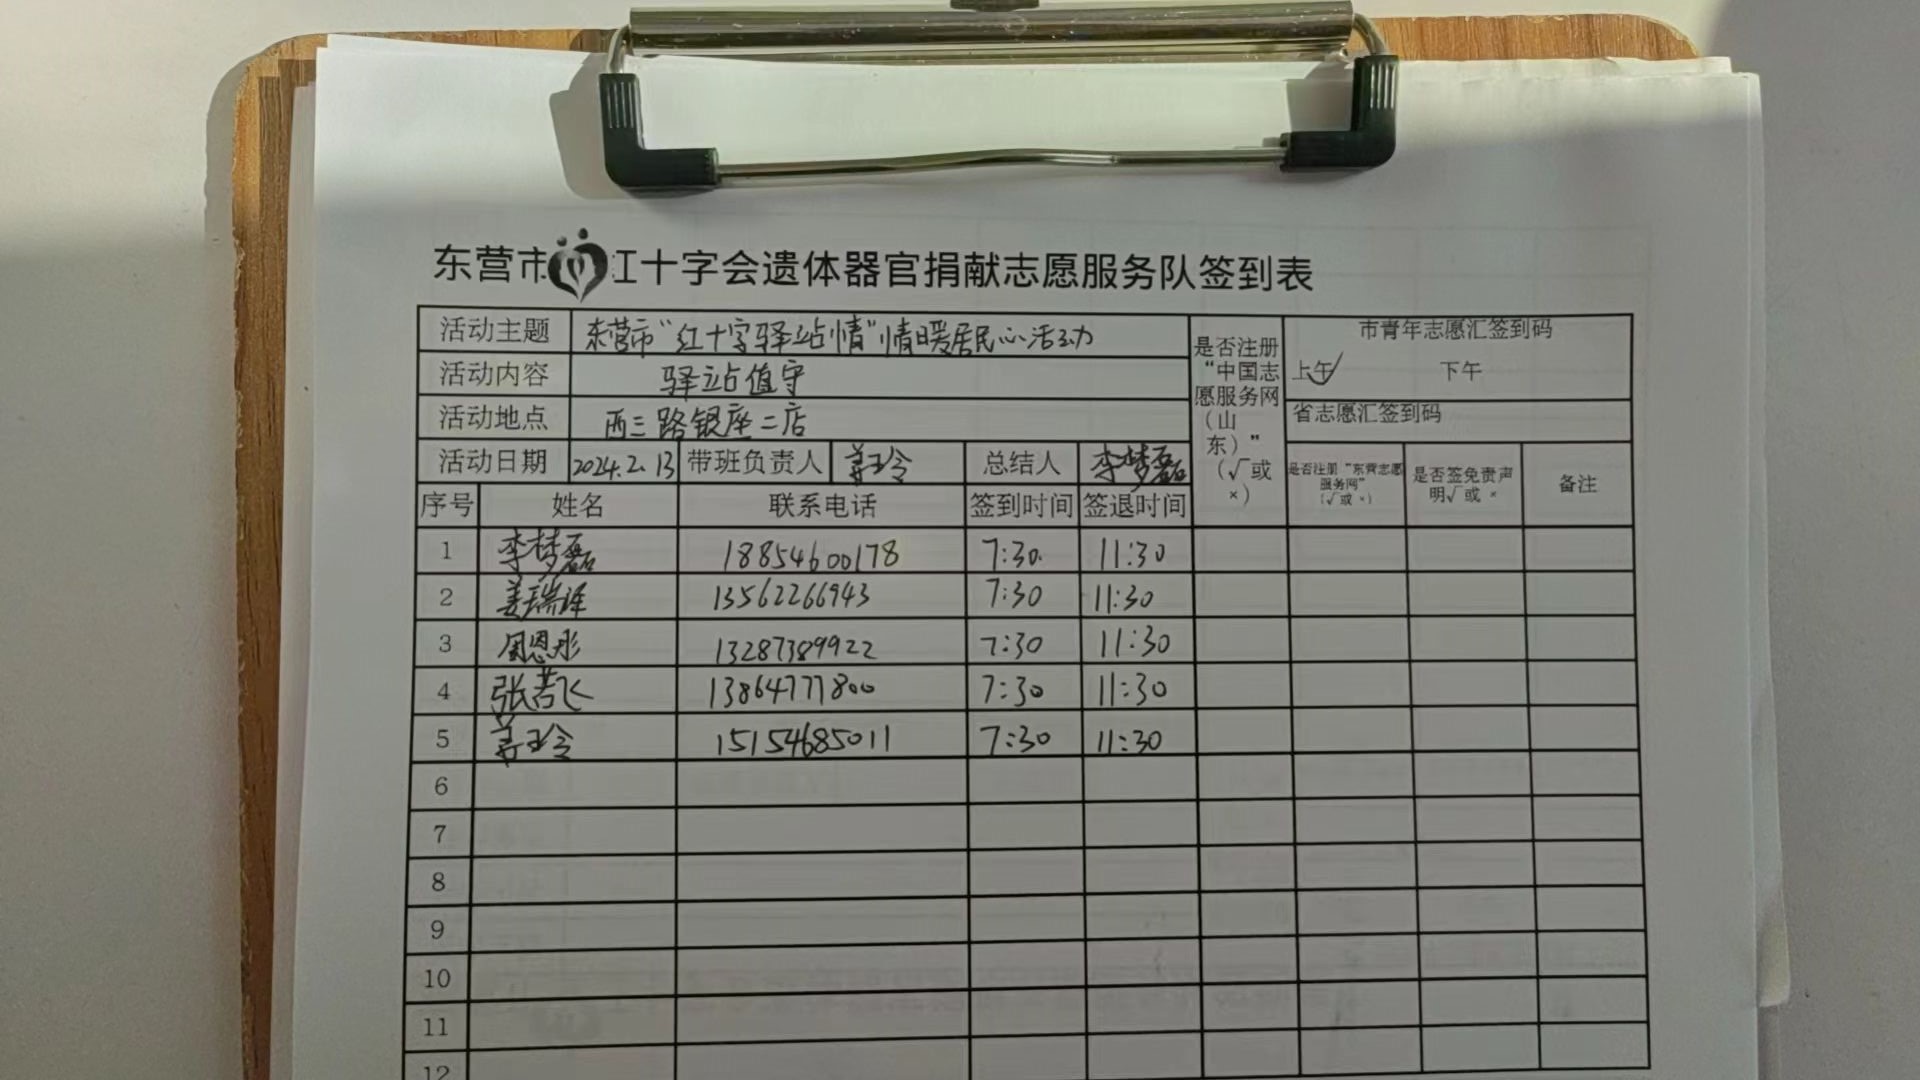 东营市红十字会遗体器官捐献志愿服务队签到表
活动主题 东营市“红十字驿站情”情暖居民心活动
活动内容 驿站值守
活动地点 西三路银座二店
活动日期 2024.2.13 带班负责人 总结人 李梦磊
是否注册“中国志愿服务网（山东）”（√或×）
市青年志愿汇签到码
上午✓ 下午
省志愿汇签到码
序号 姓名 联系电话 签到时间 签退时间 是否注册“东营志愿服务网”（√或×） 是否签免责声明√或× 备注
1 李梦磊 18854600178 7:30 11:30
2 姜瑞泽 13562266943 7:30 11:30
3 周恩彤 13287389922 7:30 11:30
4 张若飞 13864777800 7:30 11:30
5 15154685011 7:30 11:30
6
7
8
9
10
11
12